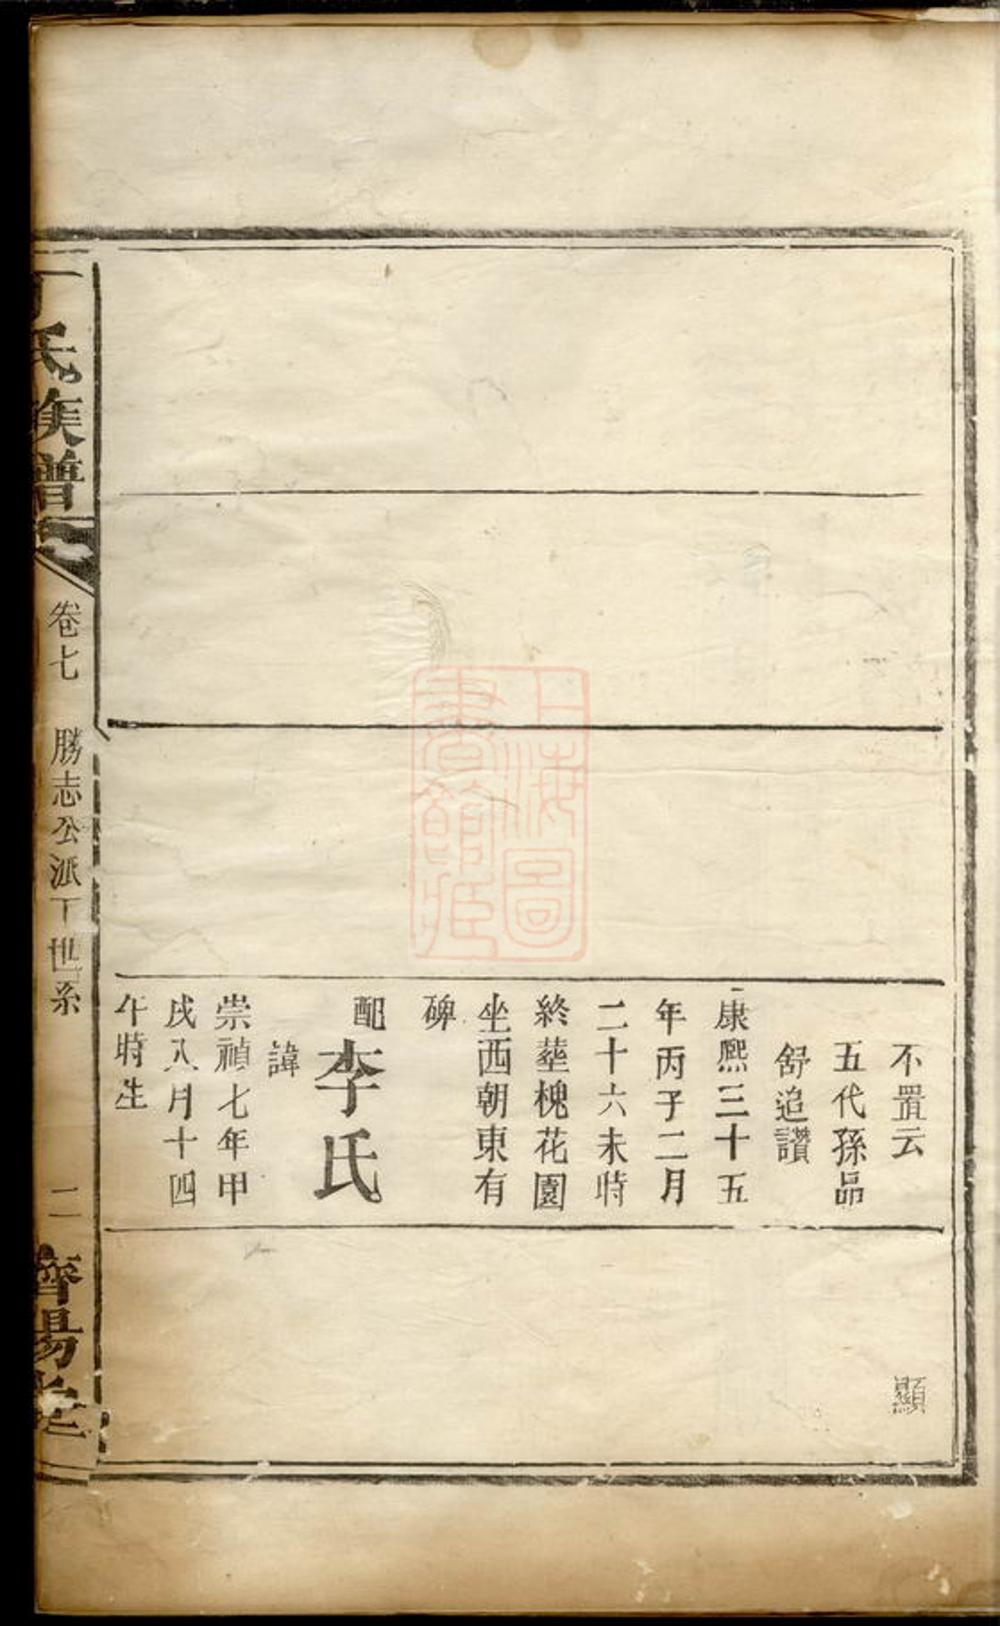 不置云
五代孫品
舒追讚
康熙三十五
年丙子二月
二十六未時
終塟槐花園
坐西朝東有
碑
配李氏
諱
崇禎七年甲
戌八月十四
午時生
顯
丁氏族譜
卷七
勝志公派下世系
二
濟陽堂
上海圖書館藏